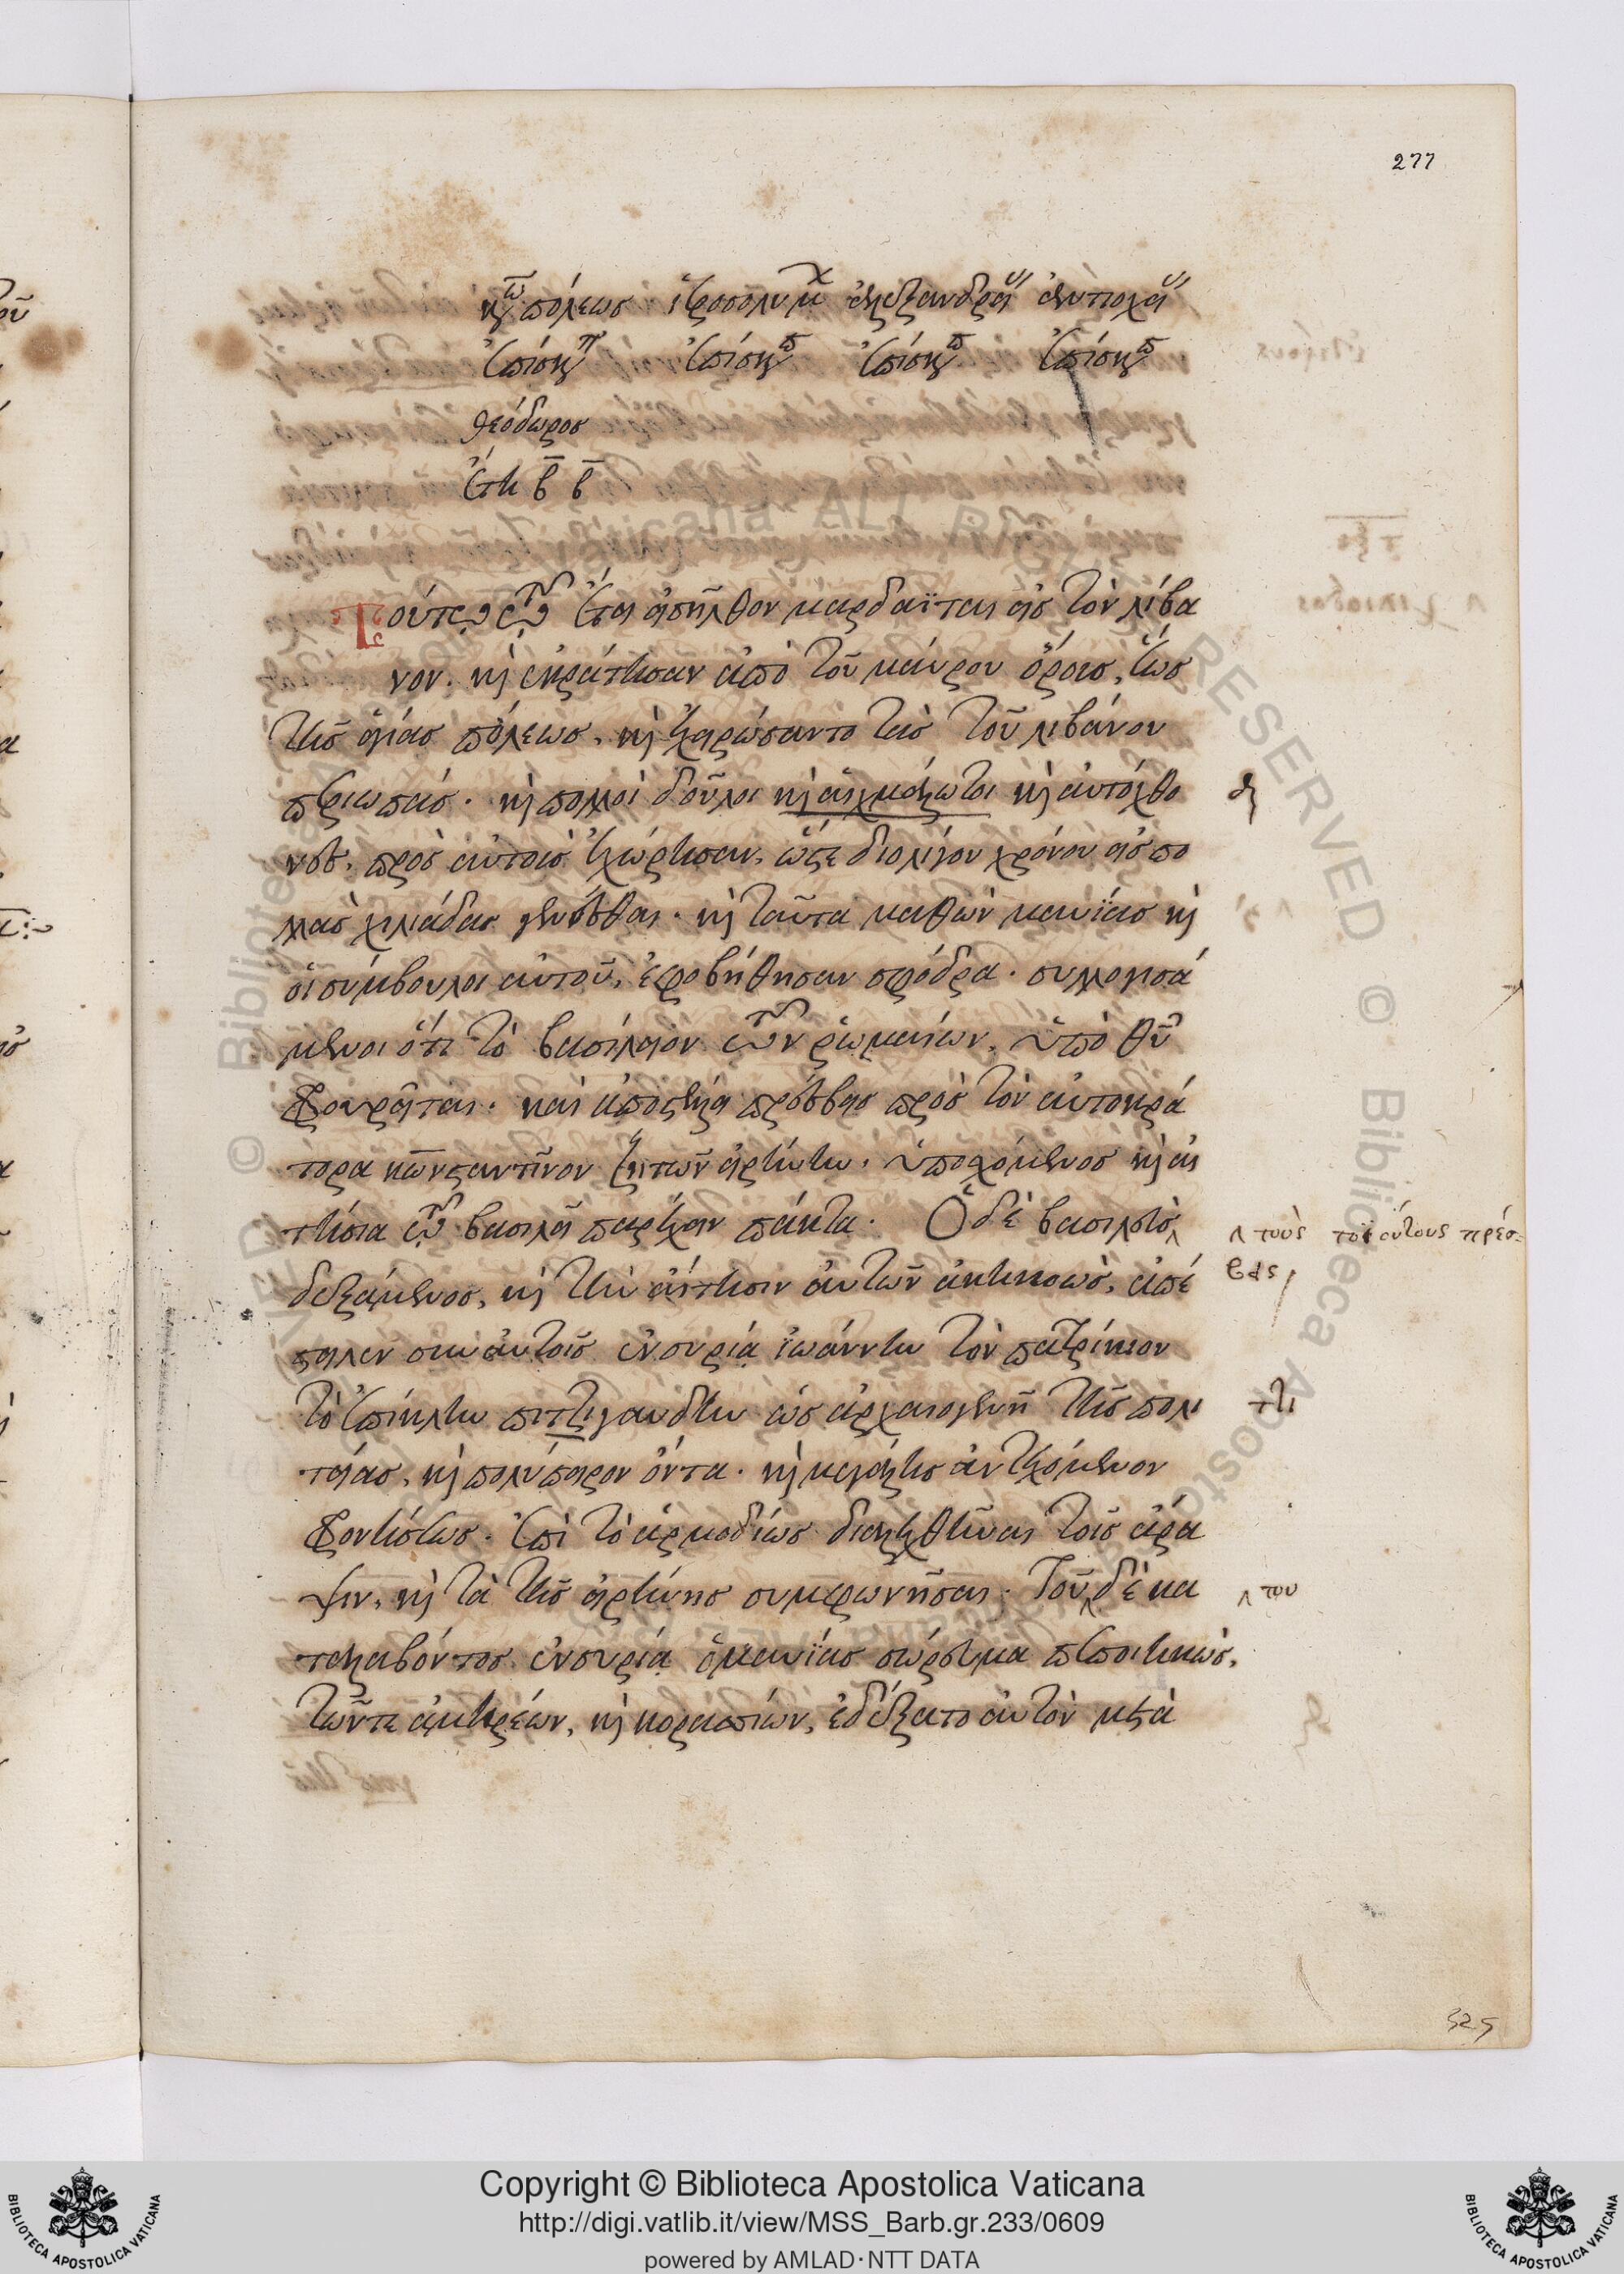 277
κωπόλεως ἱεροσολύμ ἀλεξανδρεί ἀντιοχεί
ἐπίσκοπ ἐπίσκοπ ἐπίσκοπ ἐπίσκοπ
θεόδωρος
ἔτη β β
Τούτω τῷ ἔτει εἰσῆλθον μαρδαΐται εἰς τὸν λίβα
νον. καὶ ἐκράτησαν ἀπὸ τοῦ μαύρου ὄρους, ἕως
τῆς ἁγίας πόλεως. καὶ ἐχειρώσαντο τὰς τοῦ λιβάνου
περιωπάς. καὶ πολλοὶ δοῦλοι καὶ αἰχμάλωτοι καὶ αὐτόχθο
νες, πρὸς αὐτοὺς ἐχώρησαν, ὥστε δι ὀλίγου χρόνου εἰς πο
λλὰς χιλιάδας γενέσθαι. καὶ ταῦτα μαθὼν μαυΐας καὶ
οἱ σύμβουλοι αὐτοῦ, ἐφοβήθησαν σφόδρα. συλλογισά
μενοι ὅτι τὸ βασίλειον τῶν ῥωμαίων, ὑπὸ θυ
φρουρεῖται. καὶ ἀποστέλλει πρέσβεις πρὸς τὸν αὐτοκρά
τορα κωνσταντῖνον ζητῶν εἰρήνην, ὑποσχόμενος καὶ ἐ
τήσια τῷ βασιλεῖ παρέχειν πάκτα. Ὁ δὲ βασιλεὺς
^ τοὺς τοιούτους πρέσ=
βεις,
δεξάμενος, καὶ τὴν αἴτησιν αὐτῶν ἀκηκοὼς, ἀπέ
στειλεν σὺν αὐτοῖς ἐν συρίᾳ ἰωάννην τὸν πατρίκιον
τὸ ἐπίκλην πιτζιγαυδὴν ὡς ἀρχαιογενῆ τῆς πολι
τείας, καὶ πολύπειρον ὄντα. καὶ μεγάλης ἀντεχόμενον
φρονήσεως. ἐπὶ τὸ ἁρμοδίως διαλεχθῆναι τοῖς ἄρα
ψιν, καὶ τὰ τῆς εἰρήνης συμφωνῆσαι. Τοῦ δὲ κα
^ του
ταλαβόντος ἐν συρίᾳ ὁ μαυΐας σώρευμα πεποιηκὼς,
τῶν τε ἀμηρέων, καὶ κορασπίων, ἐδέξατο αὐτὸν μετὰ
325
© Biblioteca Apostolica Vaticana ALL RIGHTS RESERVED
Copyright © Biblioteca Apostolica Vaticana
http://digi.vatlib.it/view/MSS_Barb.gr.233/0609
powered by AMLAD·NTT DATA
BIBLIOTECA APOSTOLICA VATICANA
BIBLIOTECA APOSTOLICA VATICANA